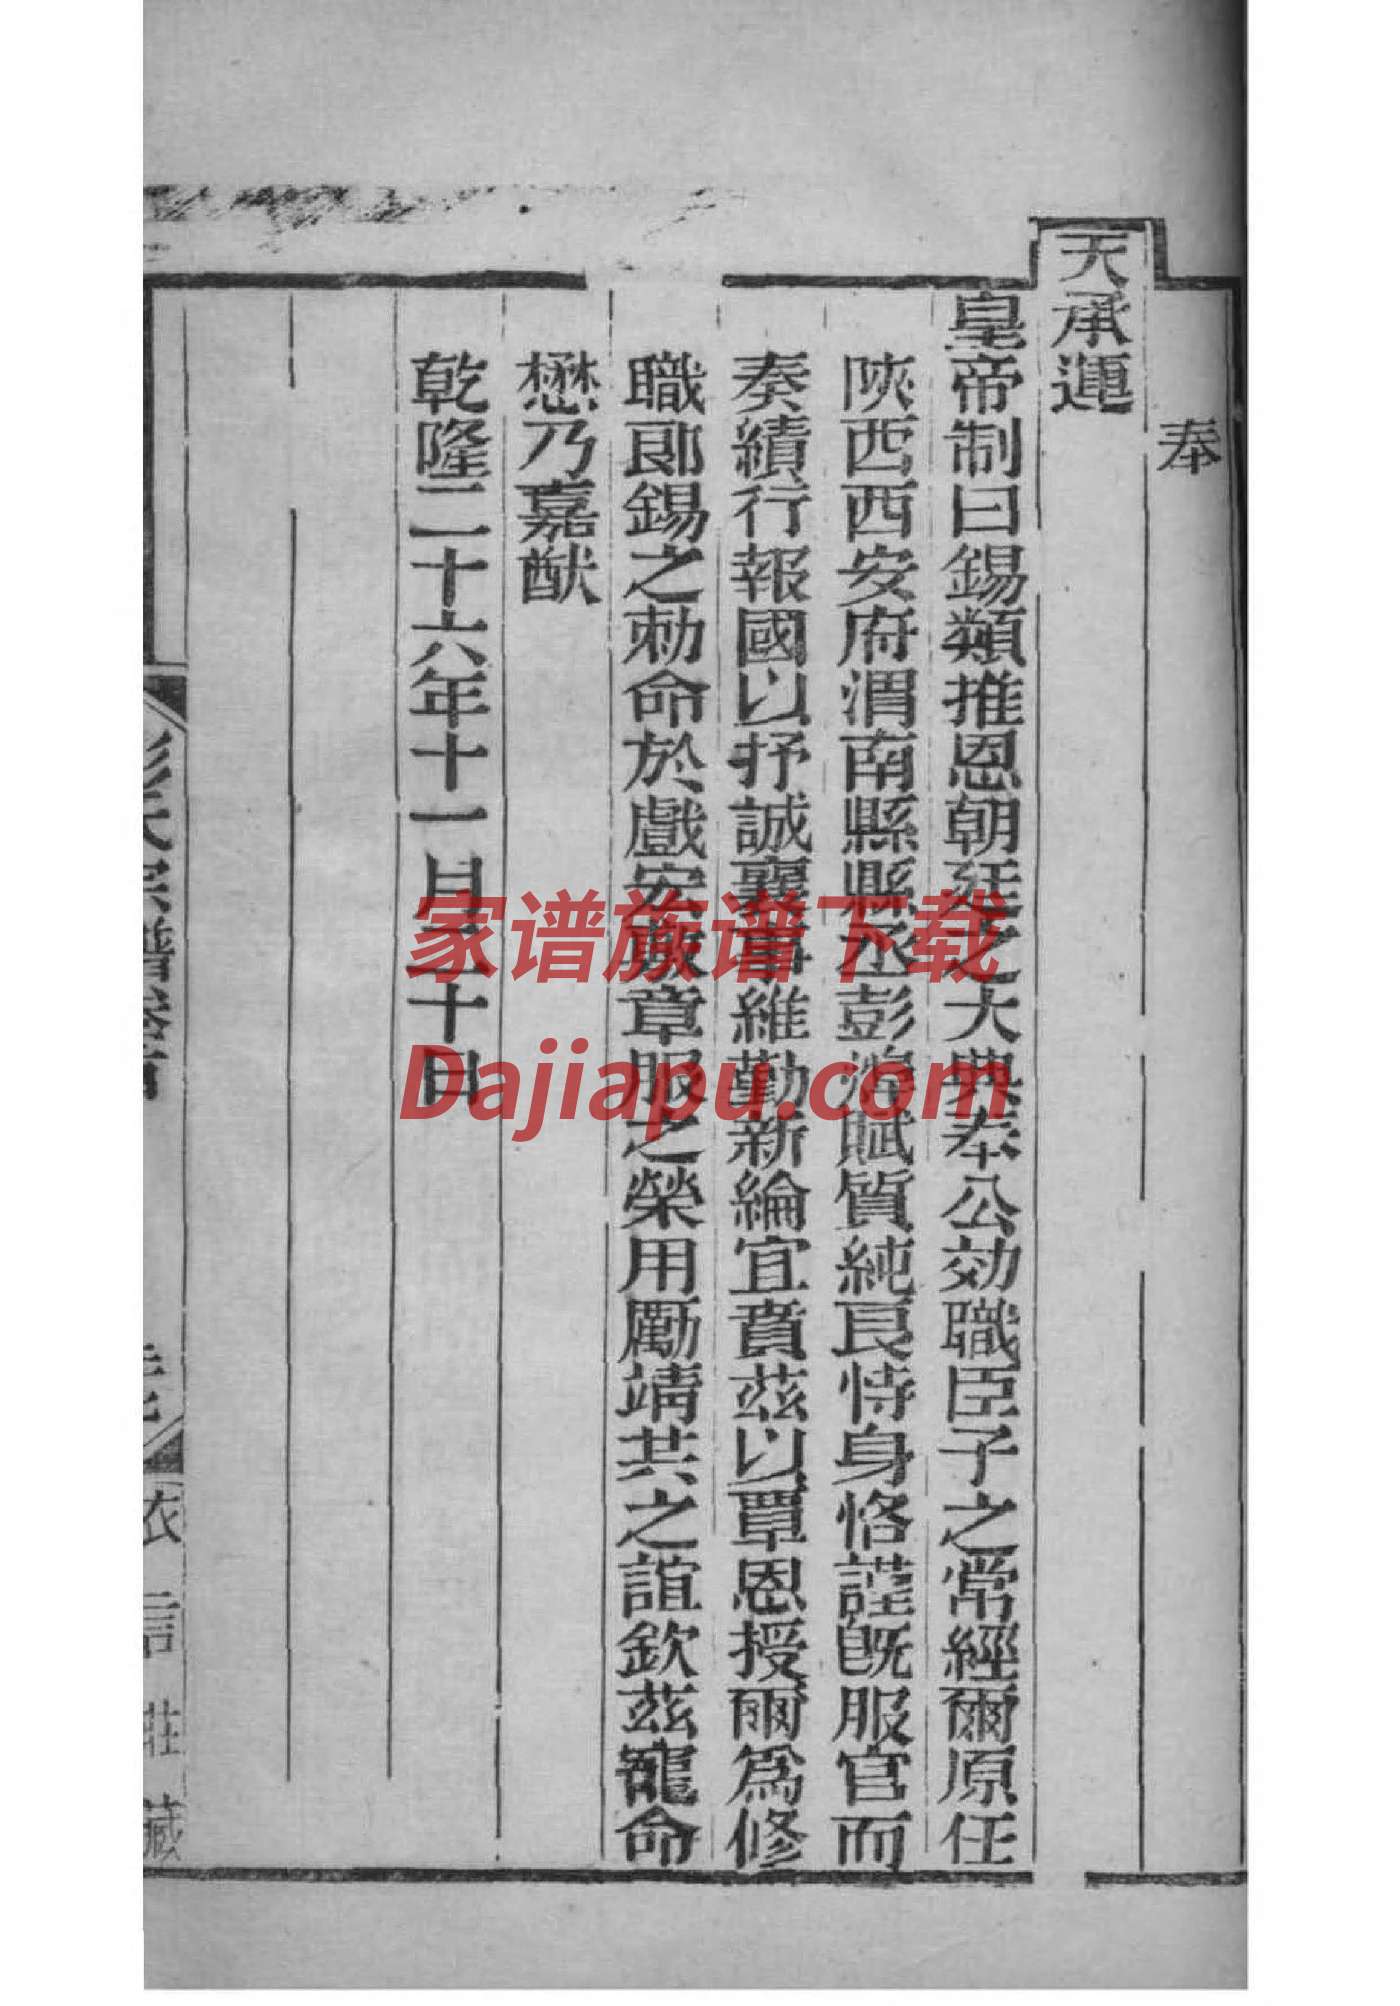 奉
天承運
皇帝制曰錫類推恩朝廷之大典奉公効職臣子之常經爾原任
陜西西安府渭南縣縣丞彭 賦質純良恃身恪謹旣服官而
奏績行報國以抒誠襄事維勤新綸宜賁茲以覃恩授爾爲修
職郎錫之勅命於戲 章服之榮用勵靖共之誼欽茲寵命
懋乃嘉猷
乾隆二十六年十一月 十日
彭氏宗譜卷首
依信莊藏
家谱族谱下载
Dajiapu.com